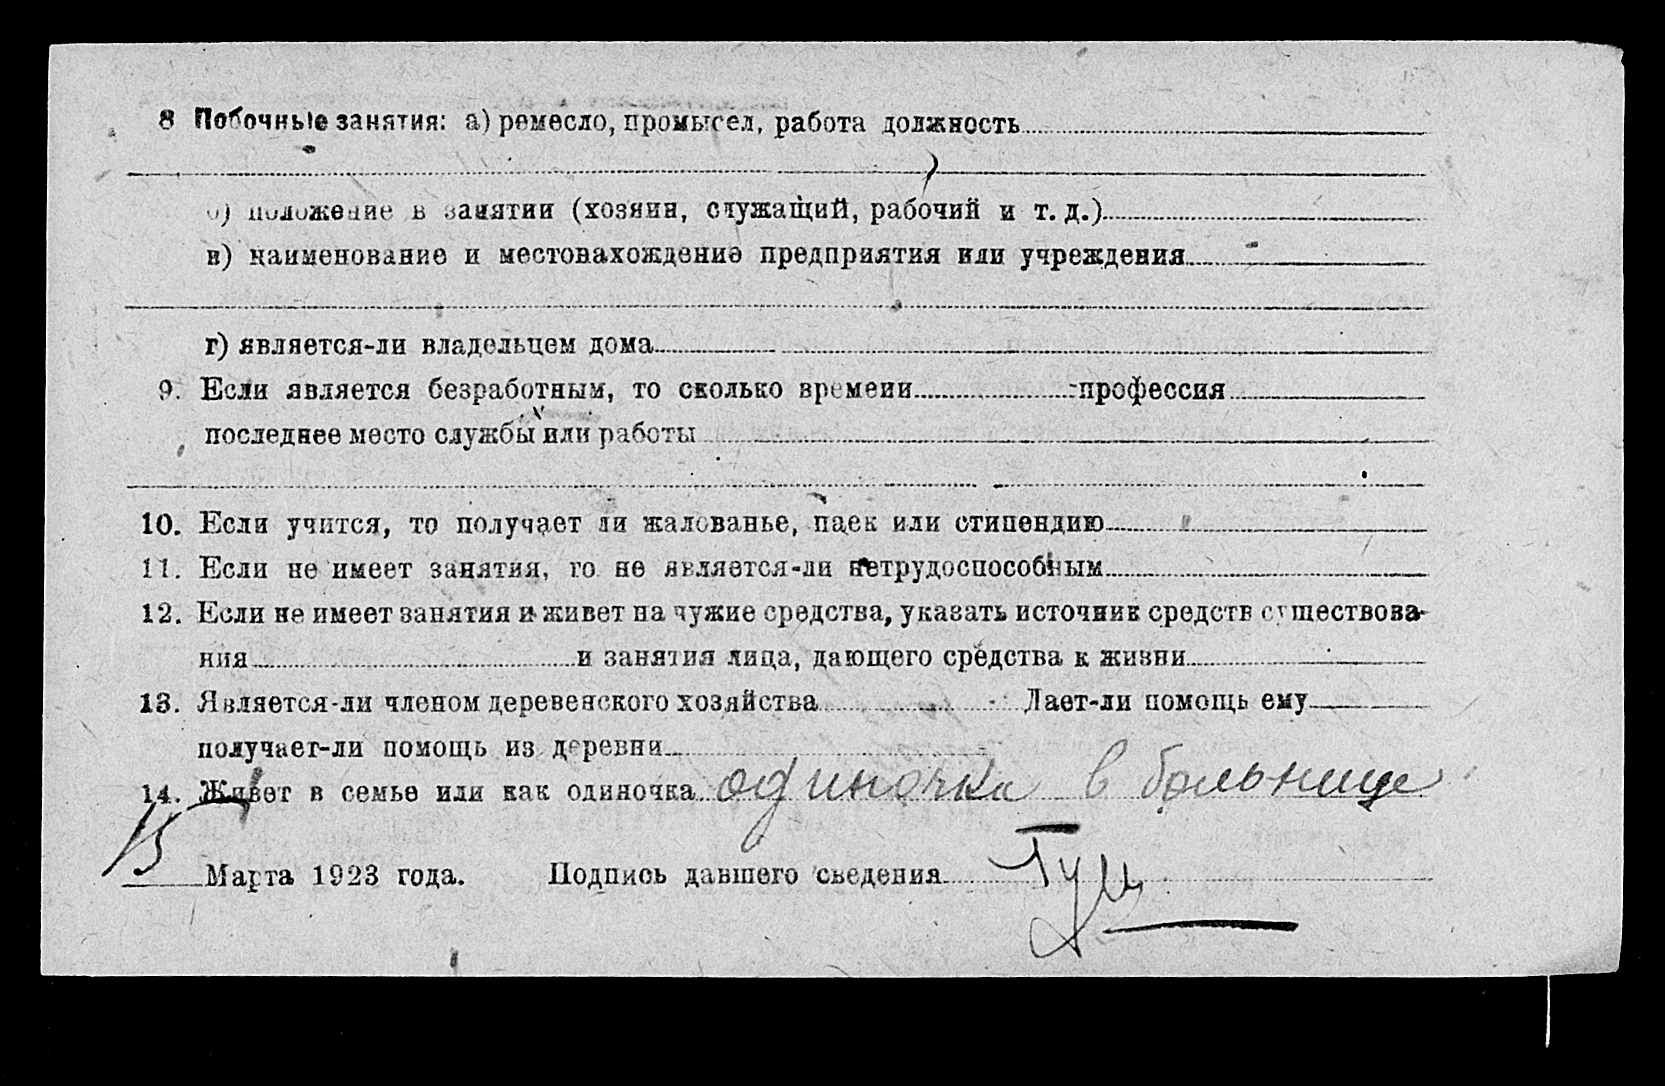 8 Побочные занятия: а) ремесло, промысел, работа должность
б) положение в занятии (хозяин, служащий, рабочий и т. д.)
в) наименование и местонахождение предприятия или учреждения
г) является-ли владельцем дома
9. Если является безработным, то сколько времени профессия
последнее место службы или работы
10. Если учится, то получает ли жалованье, паек или стипендию
11. Если не имеет занятия, то не является-ли нетрудоспособным
12. Если не имеет занятия и живет на чужие средства, указать источник средств существова-
ния и занятия лица, дающего средства к жизни
13. Является-ли членом деревенского хозяйства Дает-ли помощь ему
получает-ли помощь из деревни
14. Живет в семье или как одиночка одиночка в больнице
15 Марта 1923 года. Подпись давшего сведения